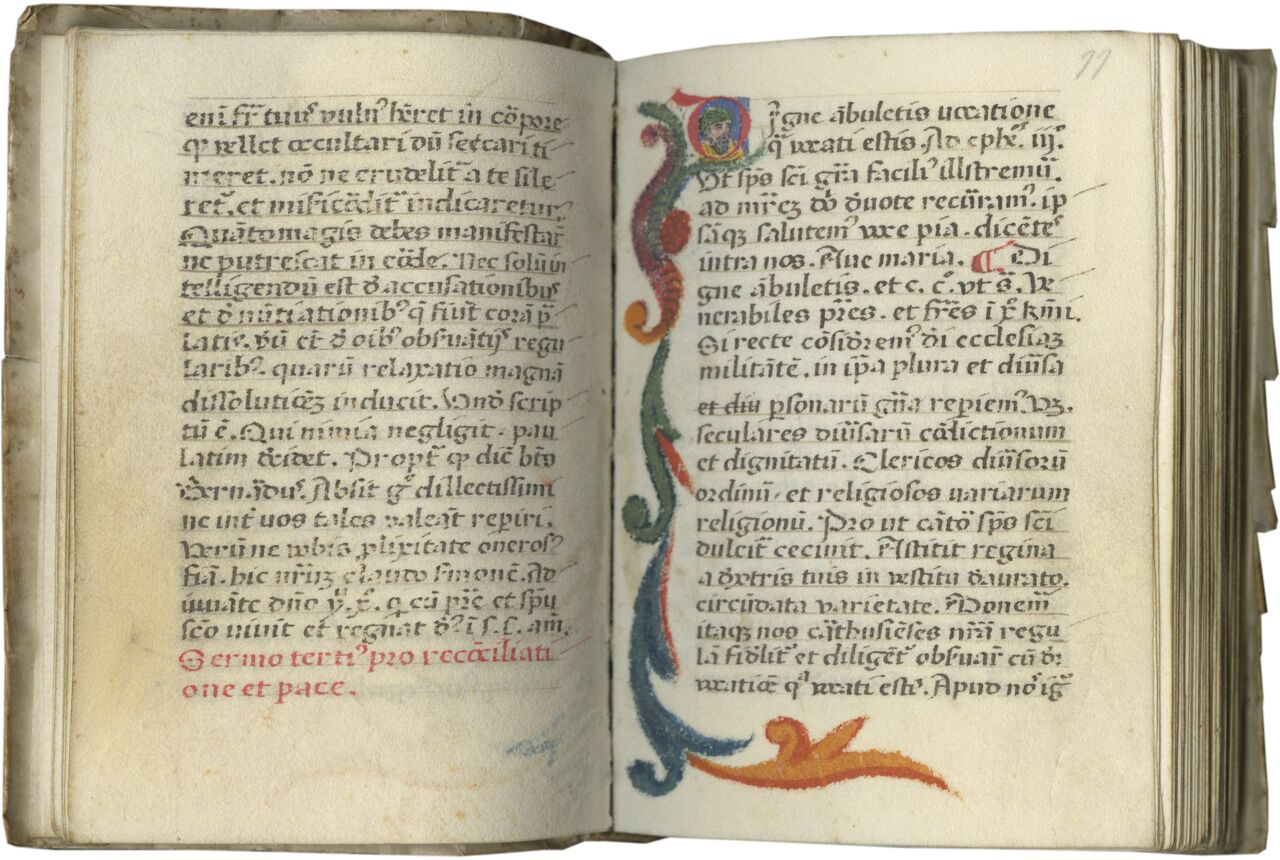 enī fr̄ tuus vulnus hēret in cōpore
qd vellet occultari dū secari ti
meret. nō ne crudelit᷑ a te sile
ret᷑. et misericōdit᷑ indicaretur
Quāto magis debes manifestar̄
ne putrescat in corde. Nec solū in
telligendū est d̄ accusationibus
et d̄nūtiationib᷒ q̄ fiūt corā p̄
latis. vū et d̄ oib᷒ obsuātijs regu
larib᷒. quarū relaxatio magnā
dissolutionēz inducit. Vnd̄ scrip
tū ē. Qui minia negligit. pau
latim decidet. Propt᷑ qd dic̄ bt̄s
Bernardus. Absit gͦ dillectissimi
ne int᷑ uos tales valeāt reperiri.
Verū ne vobis plixitate oneros᷒
fiā. hic nr̄uz claudo smonē. Ad
iuuāte dn̄o yͧ. xͦ. q cū pr̄e et sp̄u
scō uiuit et regnat d̄s ī s. s. am̄.
Sermo terti᷒ pro recōciliati
one et pace.
77
Digne ābuletis uocatione
qͣ uocati estis. Ad ephes. iiij.
Ut sp̄s sc̄i gr̄a facili᷒ illstremur̄.
ad mr̄ez dei d̄uote recurram᷒. ip
sāqz salutem᷒ uoce pia. dicētes
intra nos. Aue maria. ¶ Di
gne ābuletis. et c. c. vt s̄. Ve
nerabiles pr̄es. et fr̄es ī xͦ kmi.
Si recte cōsiderem᷒ d̄i ecclesiaz
militātē. in ip̄a plura et diūsa
et diu psonarū gn̄a reperiem᷒ vz.
seculares diūsarū cōdictionum
et dignitatū. Clericos diūsorū
ordinū. et religiosos uariarum
religionū. Pro ut cātor sp̄s sc̄i
dulcit᷑ cecinit. Astitit regina
a dextris tuis in uestitu deaurato.
circūdata varietate. Ponem᷒
itaqz nos cārthusiēses nr̄ā regu
lā fidelit᷑ et diligent᷑ obsuar̄ cū de
uocatiōe qͣ uocati estis. Apud nos igr̄